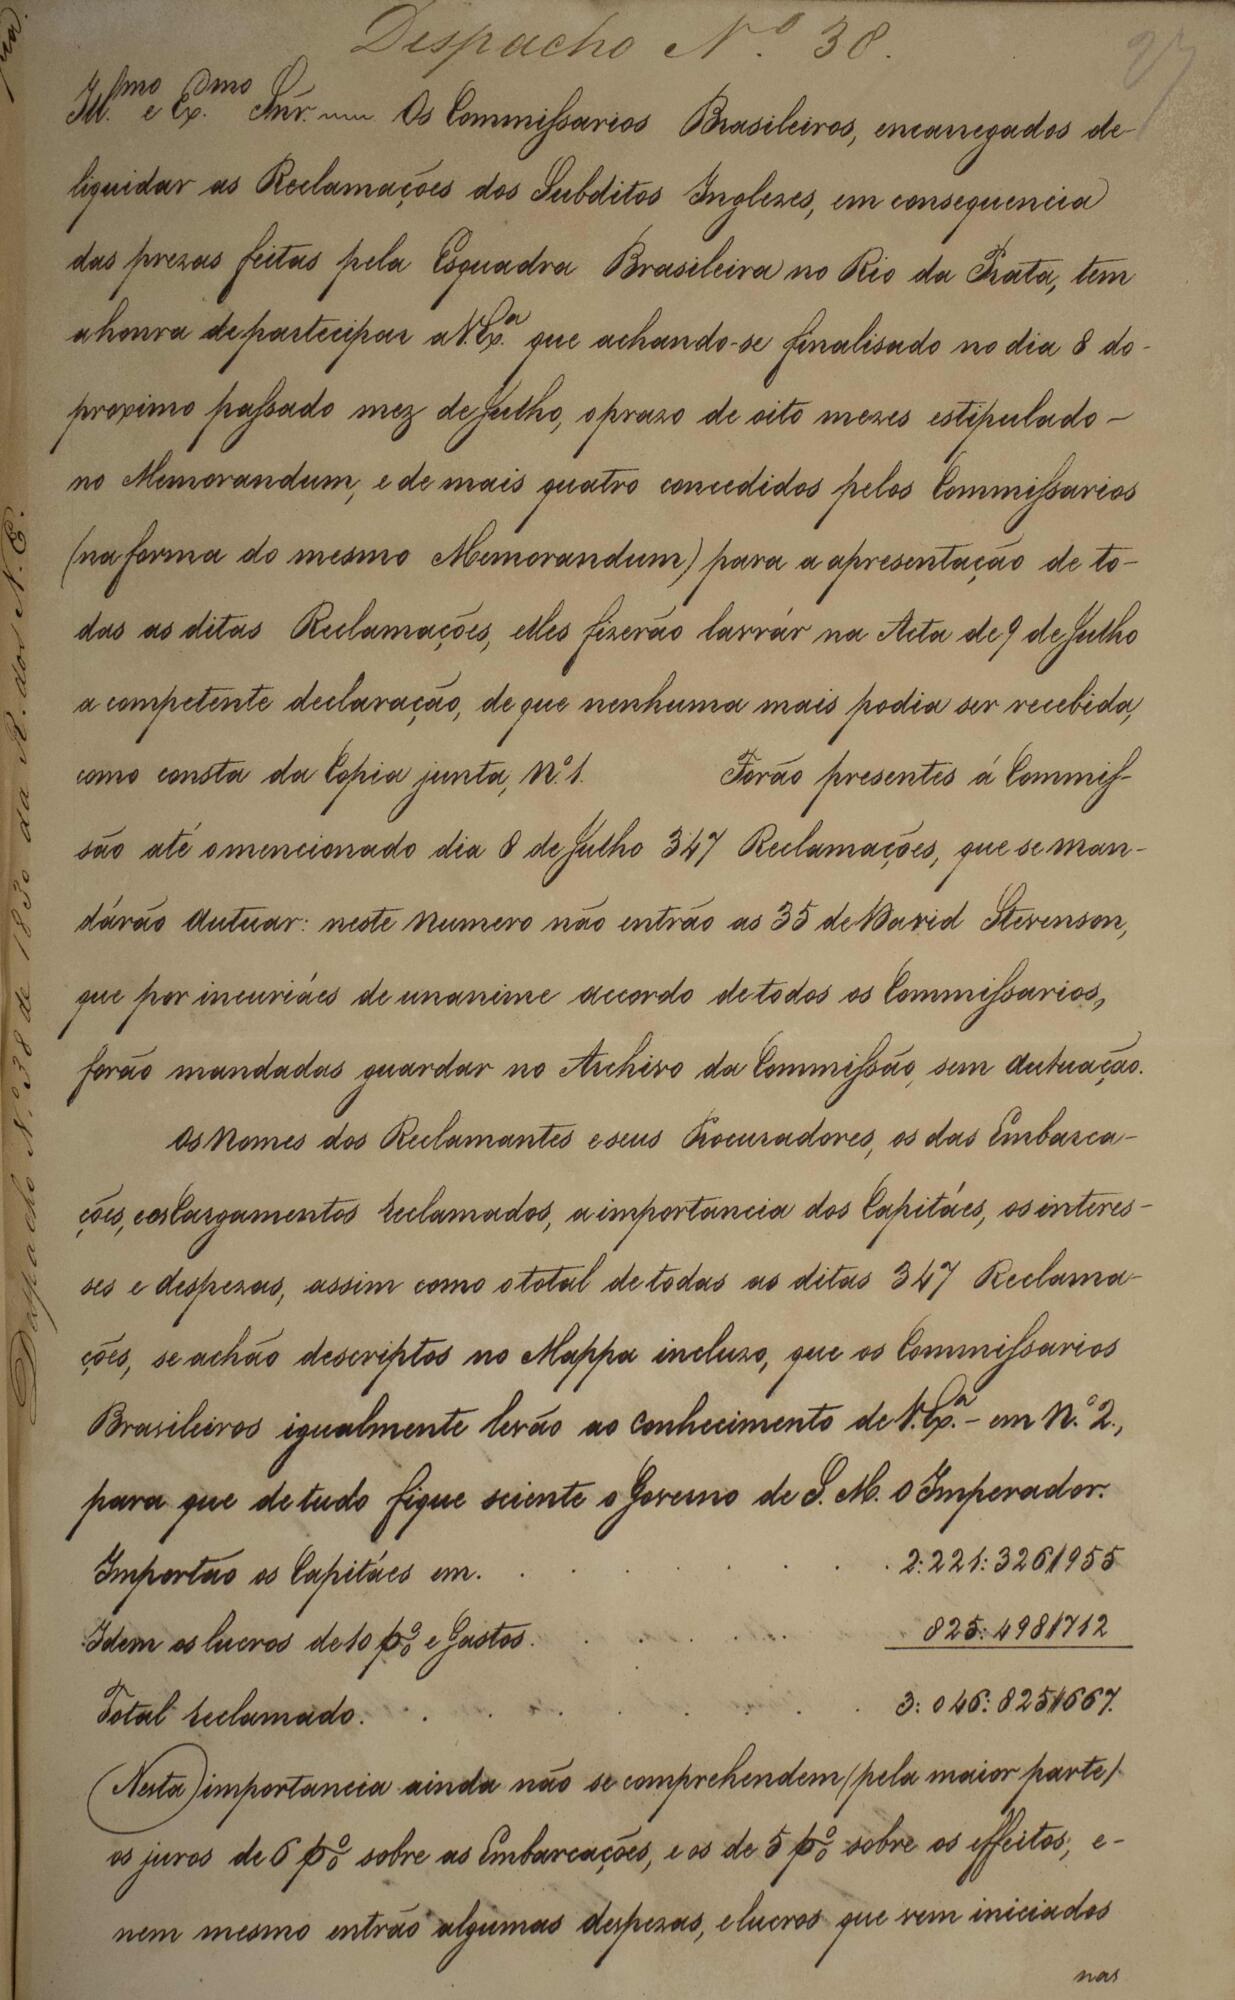 Despacho N.º 38.
27
Ill.mo e Ex.mo Snr. Os Commissarios Brasileiros, encarregados de
liquidar as Reclamações dos Subditos Inglezes, em consequencia
das prezas feitas pela Esquadra Brasileira no Rio da Prata, tem
a honra de partecipar a V. Ex.a que achando-se finalisado no dia 8 do
proximo passado mez de Julho, o prazo de oito mezes estipulado
no Memorandum, e de mais quatro concedidos pelos Commissarios
(na forma do mesmo Memorandum) para a apresentação de to-
das as ditas Reclamações, elles fizerão lavrár na Acta de 9 de Julho
a competente declaração, de que nenhuma mais podia ser recebida,
como consta da Copia junta, N.º 1. Forão presentes á Commis-
são até o mencionado dia 8 de Julho 347 Reclamações, que se man-
dárão Autuar: neste Numero não entrão as 35 de David Stevenson,
que por incuriáes de unanime accordo de todos os Commissarios,
forão mandadas guardar no Archivo da Commissão, sem Autuação.
Os Nomes dos Reclamantes e seus Procuradores, os das Embarca-
ções, e os Cargamentos reclamados, a importancia dos Capitáes, os interes-
ses e despezas, assim como o total de todas as ditas 347 Reclama-
ções, se achão descriptos no Mappa incluzo, que os Commissarios
Brasileiros igualmente levão ao conhecimento de V. Ex.a - em N.º 2.,
para que de tudo fique sciente o Governo de S. M. O Imperador.
Importão os Capitáes em. . . . . . . 2:221:326$955
Idem os lucros de 10 p% e Gastos. . . . . . 825:498$712
Total reclamado. . . . . . . . 3:046:825$667.
(Nesta) importancia ainda não se comprehendem (pela maior parte)
os juros de 6 p% sobre as Embarcações, e os de 5 p% sobre os effeitos, e
nem mesmo entrão algumas despezas, e lucros que vem iniciados
nas
Despacho N.º 38 de 1830 da R. dos N. E.